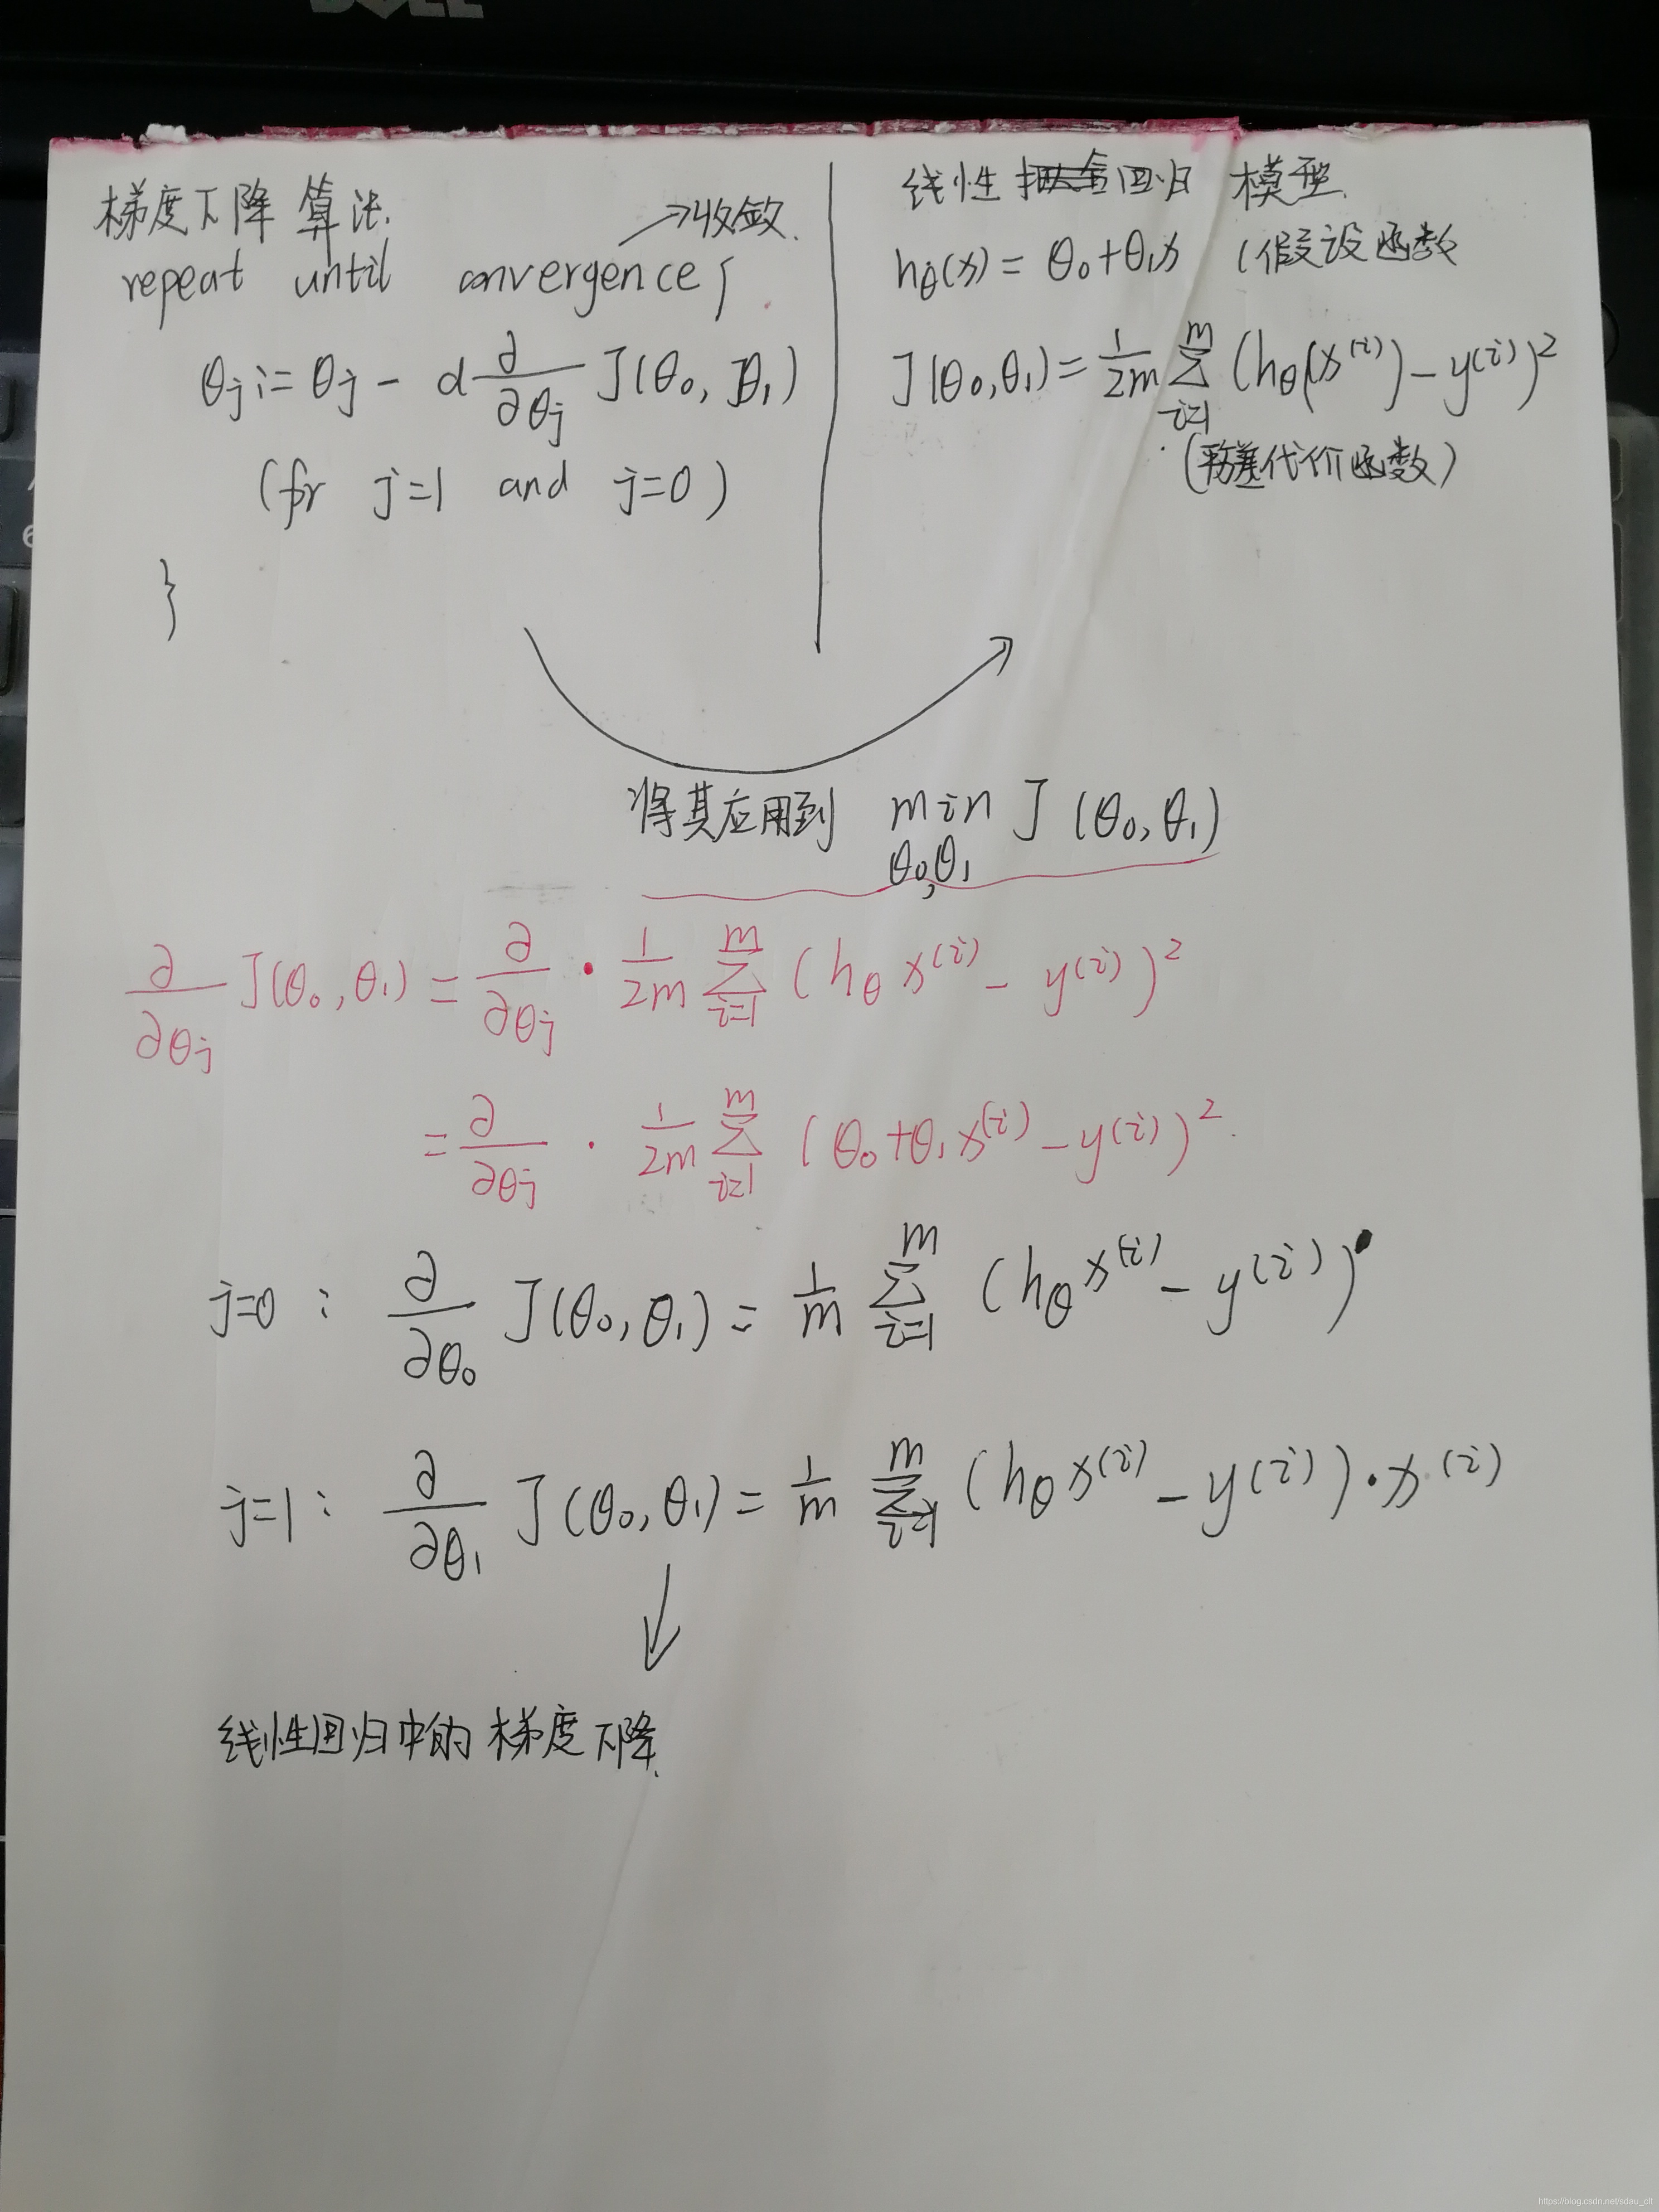 DELL
梯度下降 算法.
→收敛.
repeat until convergence {
θj := θj - α ∂/∂θj J(θ0, θ1)
(for j=1 and j=0)
}
线性 回归 模型.
hθ(x) = θ0+θ1x (假设函数
J(θ0,θ1) = 1/2m ∑_{i=1}^{m} (hθ(x^(i)) - y^(i))^2
(平方差代价函数)
将其应用到 min_{θ0,θ1} J (θ0, θ1)
∂/∂θj J(θ0, θ1) = ∂/∂θj · 1/2m ∑_{i=1}^{m} (hθ x^(i) - y^(i))^2
= ∂/∂θj · 1/2m ∑_{i=1}^{m} (θ0+θ1 x^(i) - y^(i))^2.
j=0 : ∂/∂θ0 J(θ0, θ1) = 1/m ∑_{i=1}^{m} (hθ x^(i) - y^(i))
j=1 : ∂/∂θ1 J(θ0, θ1) = 1/m ∑_{i=1}^{m} (hθ x^(i) - y^(i)) · x^(i)
↓
线性回归中的 梯度下降.
https://blog.csdn.net/sdau_cll